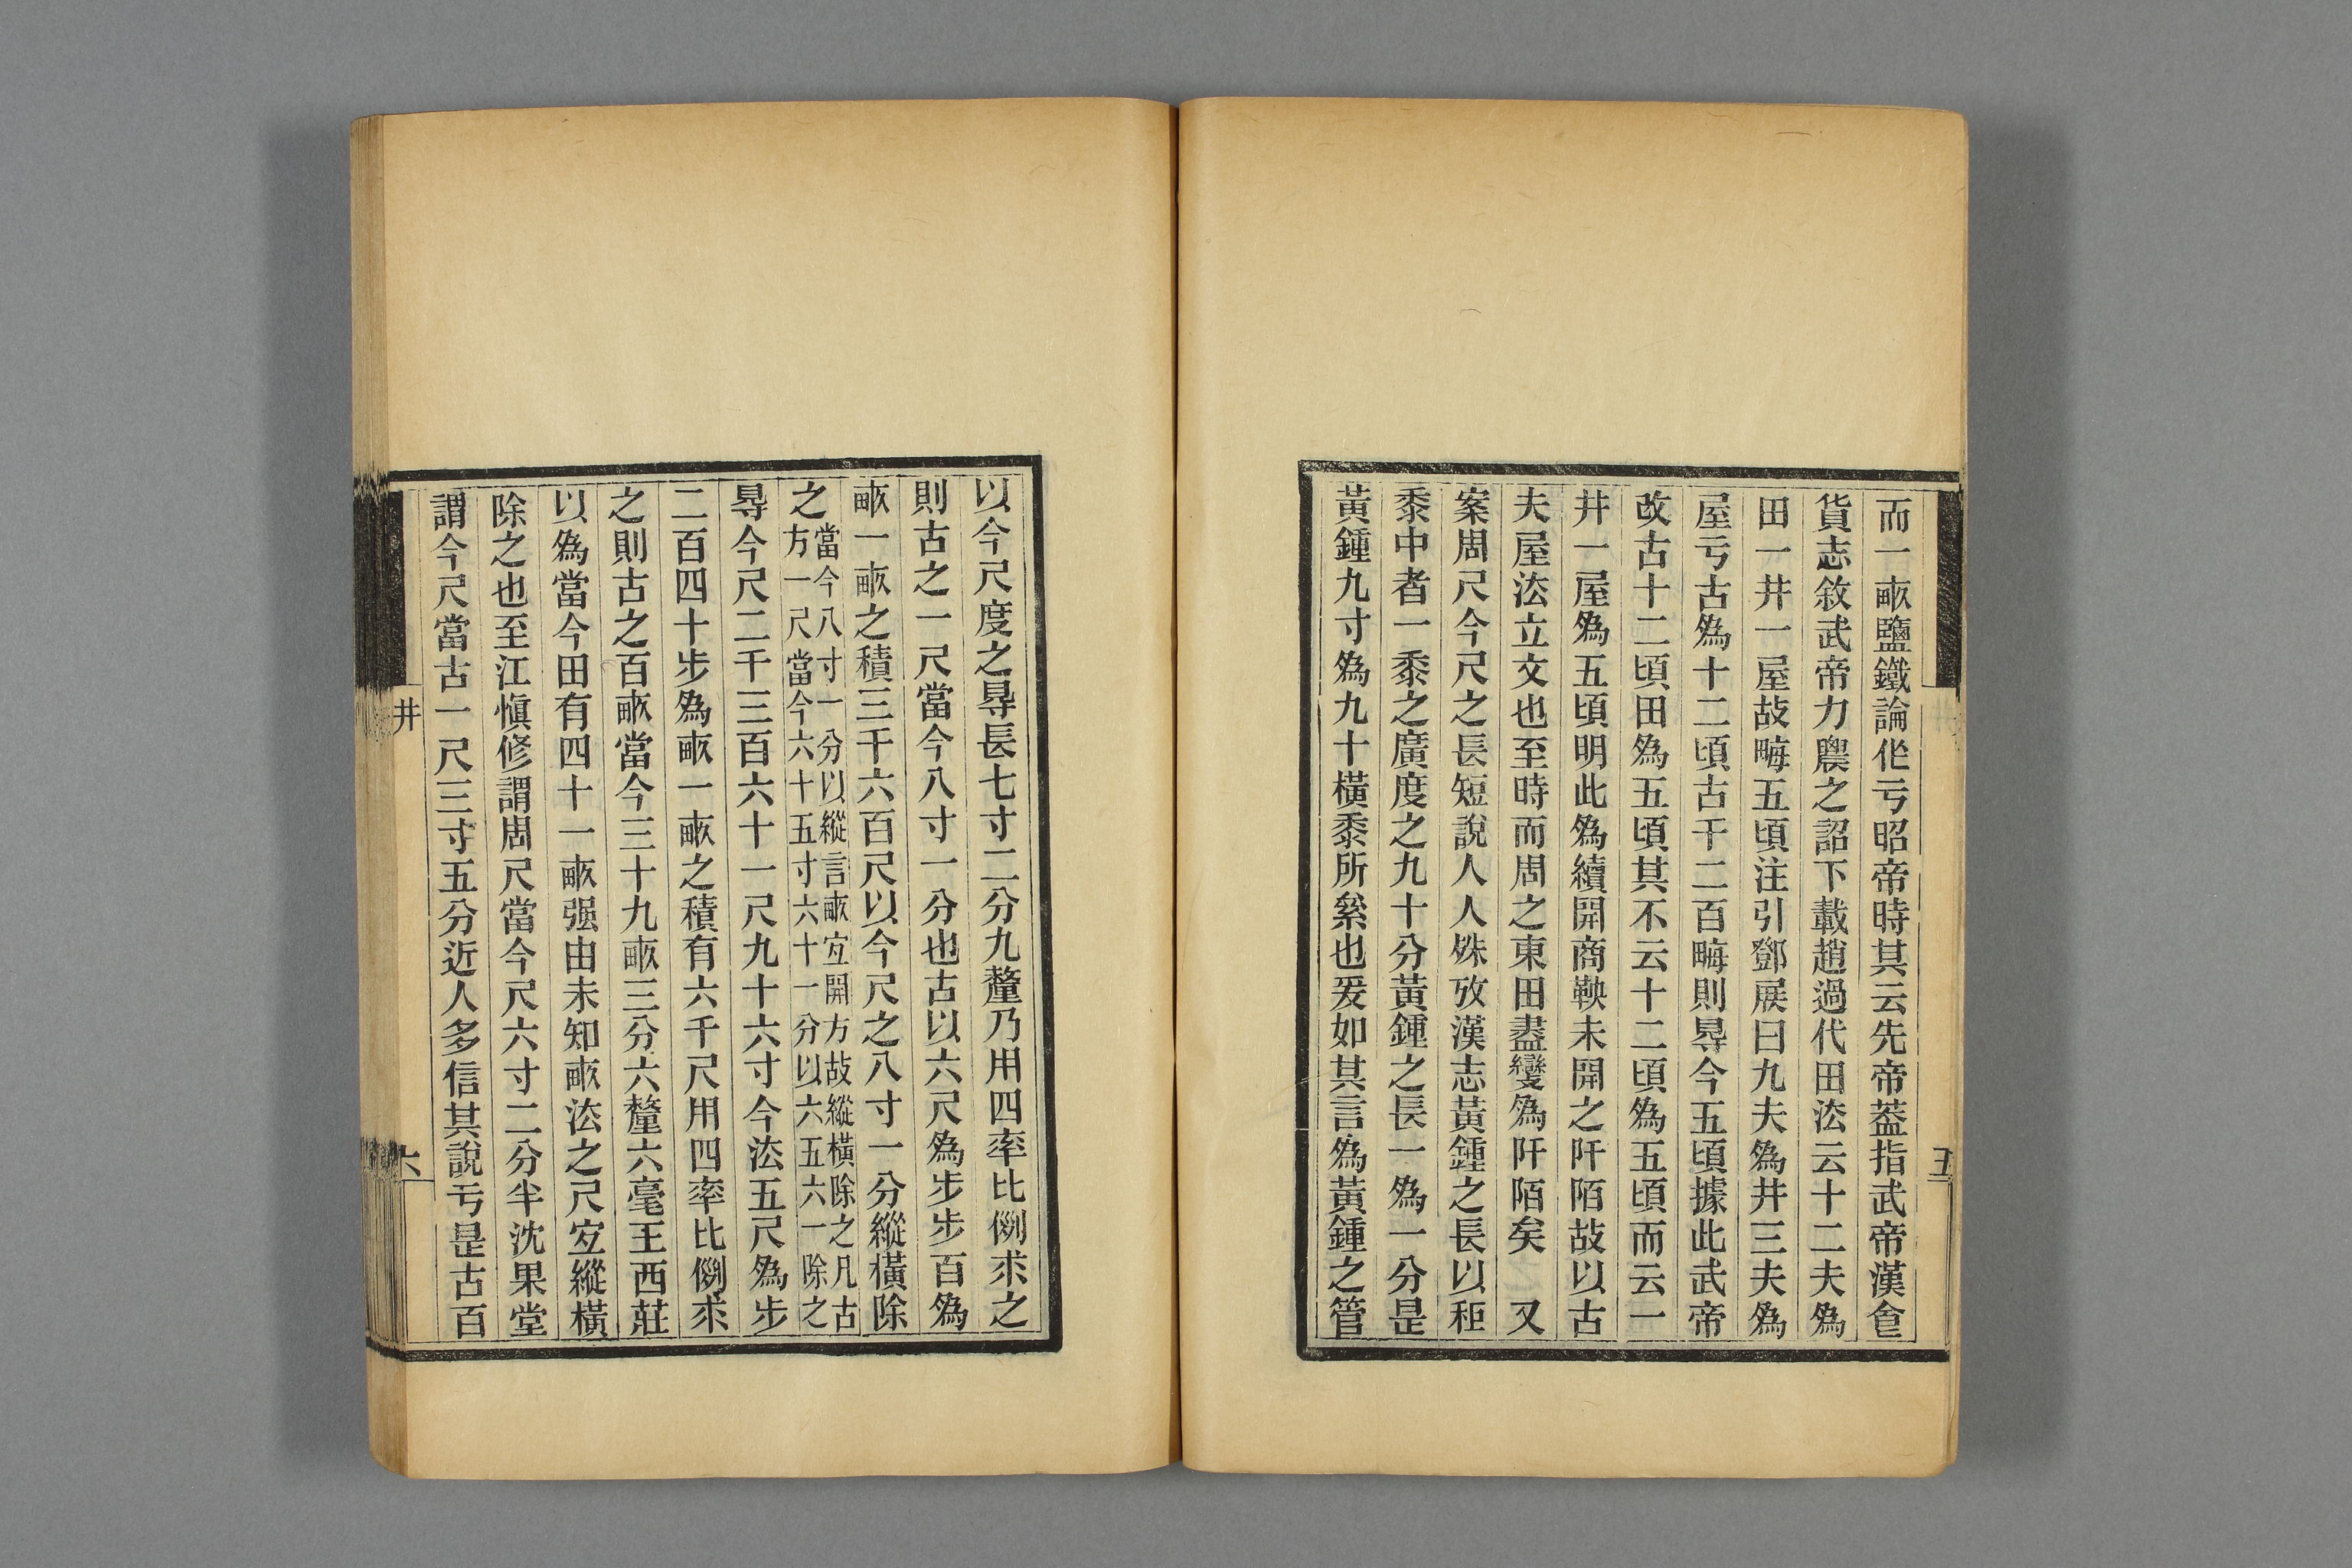 而一畞鹽鐵論作亏昭帝時其云先帝葢指武帝漢食
貨志敘武帝力農之詔下載趙過代田法云十二夫爲
田一井一屋故畮五頃注引鄧展曰九夫爲井三夫爲
屋亏古爲十二頃古千二百畮則㝵今五頃據此武帝
改古十二頃田爲五頃其不云十二頃爲五頃而云一
井一屋爲五頃明此爲續開商鞅未開之阡陌故以古
夫屋法立文也至時而周之東田盡變爲阡陌矣　又
案周尺今尺之長短說人人殊攷漢志黃鍾之長以秬
黍中者一黍之廣度之九十分黃鍾之長一爲一分是
黃鍾九寸爲九十橫黍所絫也爰如其言爲黃鍾之管
五
以今尺度之㝵長七寸二分九釐乃用四率比例求之
則古之一尺當今八寸一分也古以六尺爲步步百爲
畞一畞之積三千六百尺以今尺之八寸一分縱橫除
之
當今八寸一分以縱言畞宐開方故縱橫除之凡古
方一尺當今六十五寸六十一分以六五六一除之
㝵今尺二千三百六十一尺九十六寸今法五尺爲步
二百四十步爲畞一畞之積有六千尺用四率比例求
之則古之百畞當今三十九畞三分六釐六毫王西莊
以爲當今田有四十一畞强由未知畞法之尺宐縱橫
除之也至江愼修謂周尺當今尺六寸二分半沈果堂
謂今尺當古一尺三寸五分近人多信其說亏是古百
井
六